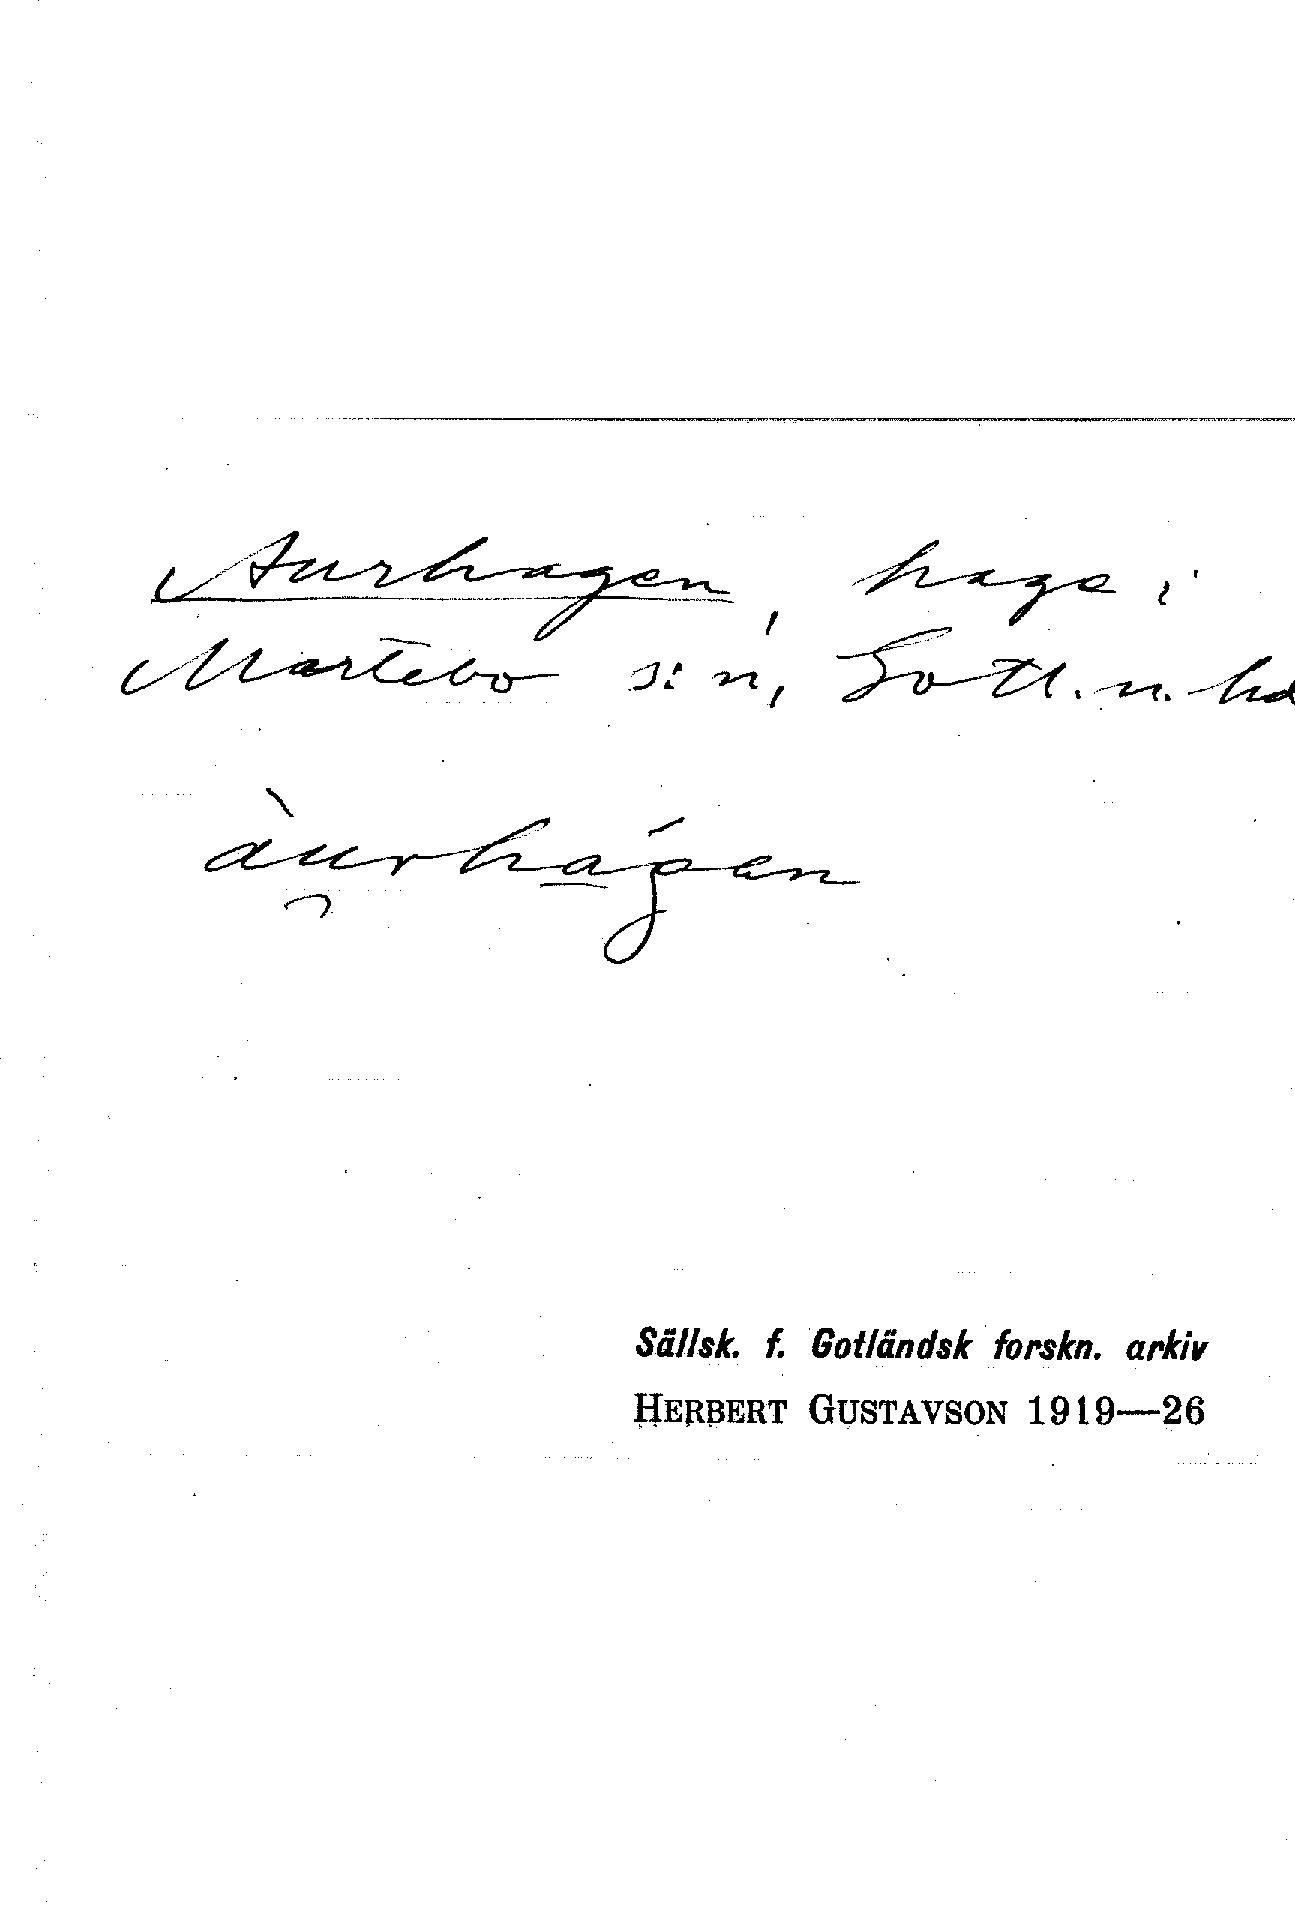 Aurhagen, hage i
Martebo s:n, Gotl. n. hd
àu̯rha̱gen
Sällsk. f. Gotländsk forskn. arkiv
HERBERT GUSTAVSON 1919—26